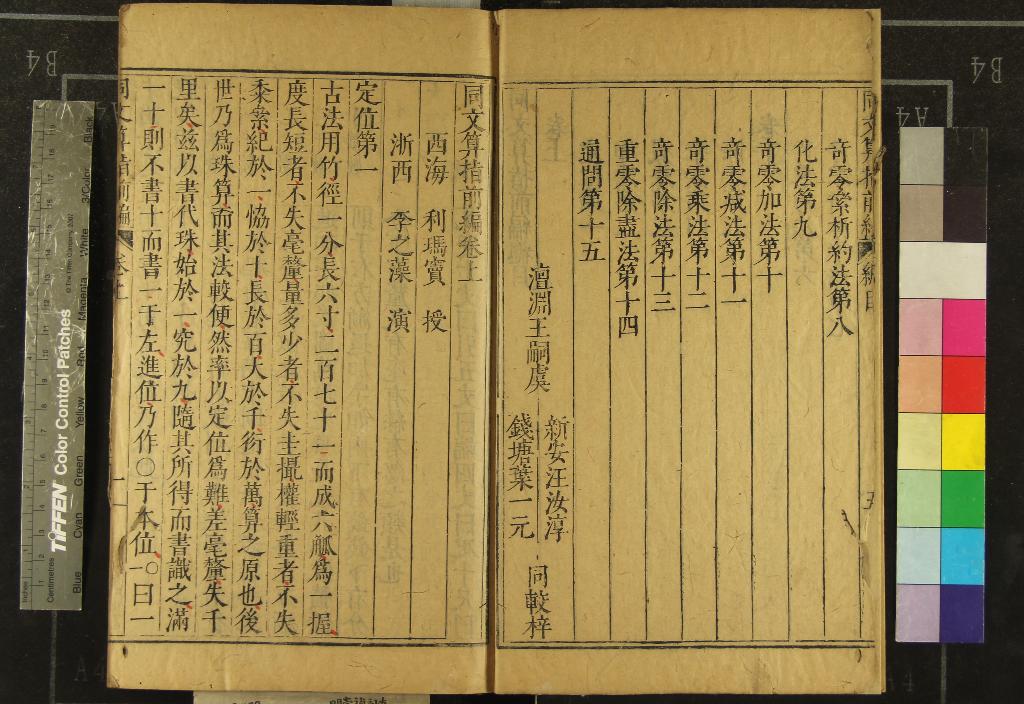 奇零絫析約法第八
化法第九
奇零加法第十
奇零减法第十一
奇零乘法第十二
奇零除法第十三
重零除盡法第十四
通問第十五
新安汪汝淳
澶淵王嗣虞
錢塘葉一元
同較梓
同文算指前編卷上
西海 利瑪竇 授
浙西 李之藻 演
定位第一
古法用竹徑一分長六寸二百七十一而成六觚爲一握
度長短者不失毫釐量多少者不失圭撮權輕重者不失
黍絫紀於一協於十長於百大於千衍於萬算之原也後
世乃爲珠算而其法較便然率以定位爲難差毫釐失千
里矣茲以書代珠始於一究於九隨其所得而書識之滿
一十則不書十而書一于左進位乃作〇于本位一〇曰一
同文算指前編 卷上
TIFFEN Color Control Patches
Blue Cyan Green Yellow Red Magenta White 3/Color Black
Inches
Centimetres
B4
B4
A4
A4